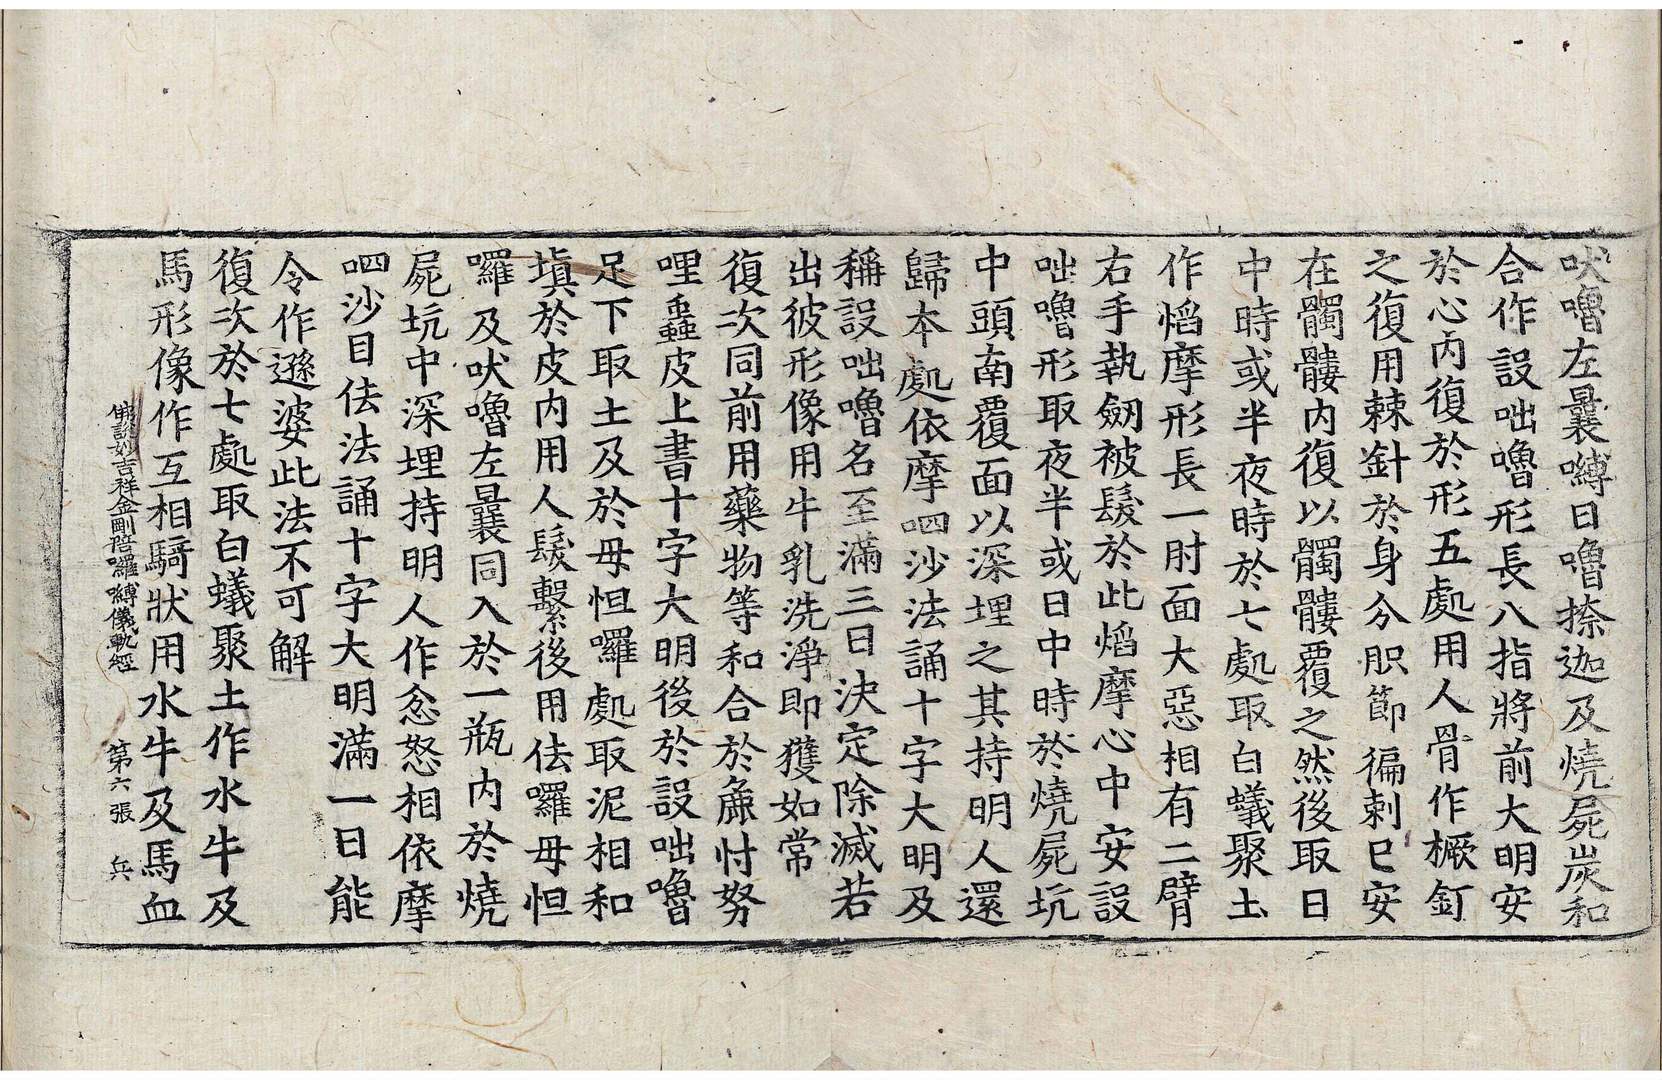 吠嚕左曩嚩日嚕捺迦及燒屍炭和
合作設咄嚕形長八指將前大明安
於心內復於形五處用人骨作橛釘
之復用棘針於身分肢節徧刺已安
在髑髏內復以髑髏覆之然後取日
中時或半夜時於七處取白蟻聚土
作焰摩形長一肘面大惡相有二臂
右手執劒被髮於此焰摩心中安設
咄嚕形取夜半或日中時於燒屍坑
中頭南覆面以深埋之其持明人還
歸本處依摩呬沙法誦十字大明及
稱設咄嚕名至滿三日決定除滅若
出彼形像用牛乳洗淨即獲如常
復次同前用藥物等和合於麁忖努
哩蟲皮上書十字大明後於設咄嚕
足下取土及於毋怛囉處取泥相和
塡於皮內用人髮繫後用佉囉毋怛
囉及吠嚕左曩同入於一瓶內於燒
屍坑中深埋持明人作忿怒相依摩
呬沙目佉法誦十字大明滿一日能
令作遜婆此法不可解
復次於七處取白蟻聚土作水牛及
馬形像作互相騎狀用水牛及馬血
佛說妙吉祥金剛陪囉嚩儀軌經 第六張 兵